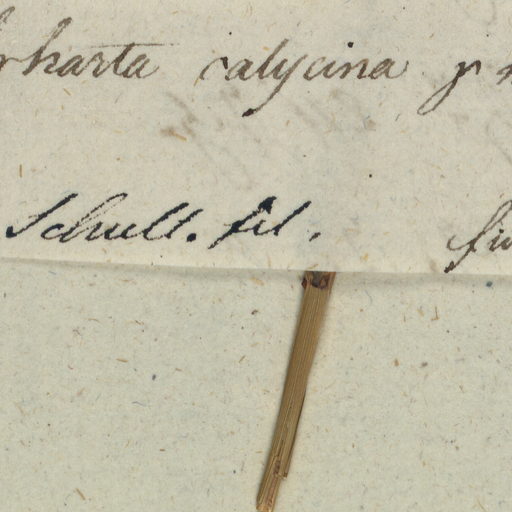 rharta calycina
Schult. fil.